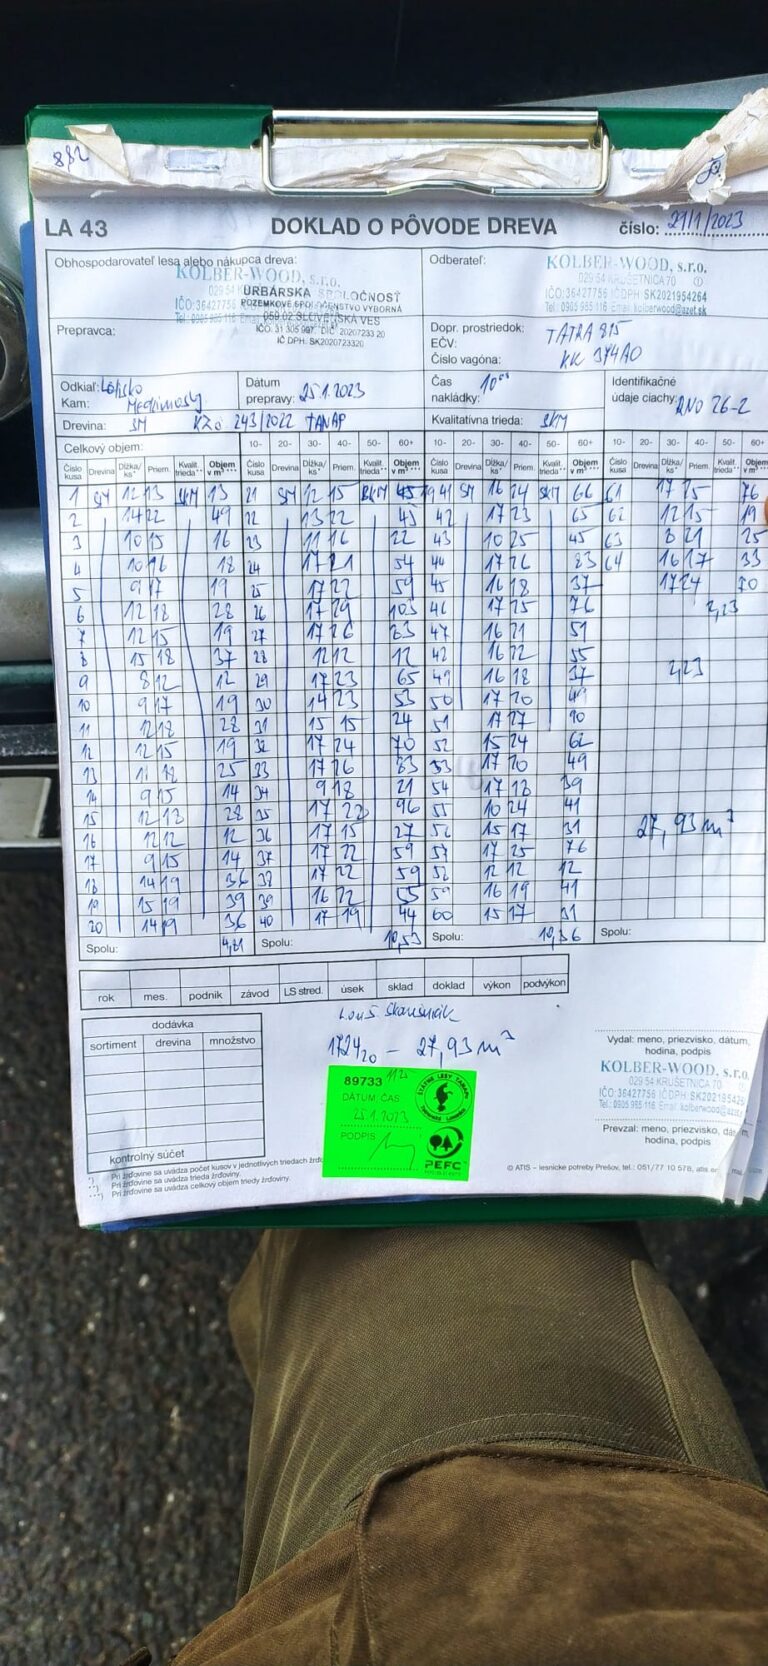 882
LA 43 DOKLAD O PÔVODE DREVA číslo: 21/1/2023
Obhospodarovateľ lesa alebo nákupca dreva:
KOLBER-WOOD, s.r.o.
029 54
URBÁRSKA SPOLOČNOSŤ
IČO:36427756 POZEMKOVÉ SPOLOČENSTVO VÝBORNÁ
059 02 SLOVENSKÁ VES
IČ DPH: SK2020723320
Odberateľ:
KOLBER-WOOD, s.r.o.
029 54 KRUŠETNICA 70
IČO:36427756 IČ DPH: SK2021954264
Tel.: 0905 985 116 Email: kolberwood@azet.sk
Prepravca:
Dopr. prostriedok: TATRA 815
EČV: KK 374AO
Číslo vagóna:
Odkiaľ:
Kam:
Dátum
prepravy: 25.1.2023
Čas
nakládky: 10
Identifikačné
údaje ciachy: RNO 26-2
Drevina: SM KZo 243/2022 TANAP
Kvalitatívna trieda: SKM
Celkový objem: 10- 20- 30- 40- 50- 60+ 10- 20- 30- 40- 50- 60+ 10- 20- 30- 40- 50- 60+
Číslo kusa Drevina Dĺžka/ks* Priem. Kvalit. trieda** Objem v m³*** Číslo kusa Drevina Dĺžka/ks* Priem. Kvalit. trieda** Objem v m³*** Číslo kusa Drevina Dĺžka/ks* Priem. Kvalit. trieda** Objem v m³*** Číslo kusa Drevina Dĺžka/ks* Priem. Kvalit. trieda** Objem v m³***
1 SM 12 13 SKM 13 21 SM 12 15 41 SM 16 24 SKM 66 61 17 25 76
2 14 22 49 22 13 22 45 42 17 23 65 62 12 15 19
3 10 15 16 23 11 16 22 43 10 25 45 63 8 21 25
4 10 16 18 24 17 21 54 44 17 26 83 64 16 17 33
5 9 17 19 25 17 22 59 45 16 18 37 17 24 70
6 12 18 28 26 17 29 103 46 17 25 76 2,23
7 12 15 19 27 17 26 83 47 16 21 51
8 15 18 37 28 12 12 12 48 16 22 55
9 8 12 12 29 17 23 65 49 16 18 37 2,23
10 9 17 19 30 14 23 53 50 17 20 49
11 12 18 28 31 15 15 24 51 17 27 90
12 12 15 19 32 17 24 70 52 15 24 62
13 11 18 25 33 17 26 83 53 17 20 49
14 9 15 14 34 9 18 21 54 17 18 39
15 12 18 28 35 17 28 96 55 10 24 41
16 12 12 12 36 17 15 27 56 15 17 31 27,93 m³
17 9 15 14 37 17 22 59 57 17 25 76
18 14 19 36 38 17 22 59 58 12 12 12
19 15 19 39 39 16 22 55 59 16 19 41
20 14 19 36 40 17 19 44 60 15 17 31
Spolu: 4,81 Spolu: 10,53 Spolu: 10,36 Spolu:
rok mes. podnik závod LS stred. úsek sklad doklad výkon podvýkon
1724 20 - 27,93 m³
dodávka
sortiment drevina množstvo
kontrolný súčet
89733
DÁTUM ČAS
25.1.2023
PODPIS
ŠTÁTNE LESY TANAPu
PEFC
Vydal: meno, priezvisko, dátum,
hodina, podpis
KOLBER-WOOD, s.r.o.
029 54 KRUŠETNICA 70
IČO:36427756 IČ DPH: SK2021954
Tel.: 0905 985 116 Email: kolberwood@
Prevzal: meno, priezvisko,
hodina, podpis
Pri žrďovine sa uvádza počet kusov v jednotlivých triedach
Pri žrďovine sa uvádza trieda žrďoviny.
Pri žrďovine sa uvádza celkový objem triedy žrďoviny.
© ATIS – lesnícke potreby Prešov, tel.: 051/77 10 578,